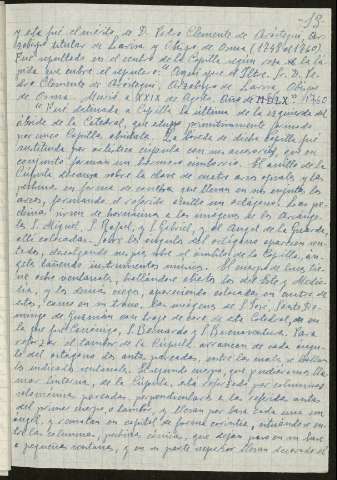 - 13 -
y ésta fué el mérito de D. Pedro Clemente de Aróstegui, Ar-
zobispo titular de Larisa y Obispo de Osma (1748 al 1760).
Fué sepultado en el centro de la Capilla según reza de la lá-
pida que cubre el sepulcro: "Aquí yace el Iltmo. Sr. D. Pe-
dro Clemente de Aróstegui, Arzobispo de Larisa, Obispo
de Osma. Murió a XXIX de Agosto. Año de MDCCLX = 1760
Fué destinada a Capilla la última de la izquierda del
ábside de la Catedral, que estuvo primitivamente formado
por cinco Capillas absidales. La bóveda de dicha Capilla fué
sustituida por artística cúpula con sus accesorios, que en
conjunto forman un hermoso cimborrio. El anillo de la
Cúpula descansa sobre la clave de cuatro arcos torales, y las
pechinas en forma de concha que llevan en sus enjutas los
arcos, formando el referido anillo un octógono. Las pe-
chinas, sirven de hornacina a las imágenes de los Arcánge-
les S. Miguel, S. Rafael, y S. Gabriel, y al Angel de la Guarda,
allí colocadas. Sobre los ángulos del octógono aparecen sen-
tados, descolgando sus pies sobre el ámbito de la Capilla, án-
geles tañendo instrumentos músicos. El cuerpo de luces tie-
ne ocho ventanales, hallándose abiertos los del Este y Medio-
día, y los demás ciegos, apareciendo colocadas en cuatro de
éstos, como en su trono, las imágenes de S. José, Santo Do-
mingo de Guzmán con traje de coro de esta Catedral, de
la que fué Canónigo, S. Bernardo y S. Buenaventura. Para
reforzar el tambor de la Cúpula arrancan de cada ángu-
lo del octógono dos antas pareadas, entre las cuales se hallan
los indicados ventanales. El segundo cuerpo, que podríamos lla-
mar linterna, de la Cúpula, está reforzado por columnas
salomónicas pareadas, perpendiculares a las referidas antas
del primer cuerpo o tambor, y llevan por base cada una un
ángel, y rematan en capitel de forma corintia, situándose en-
tre las columnas, pechina cónica, que dejan paso en su base
a pequeña ventana, y en su parte superior llevan decorado el